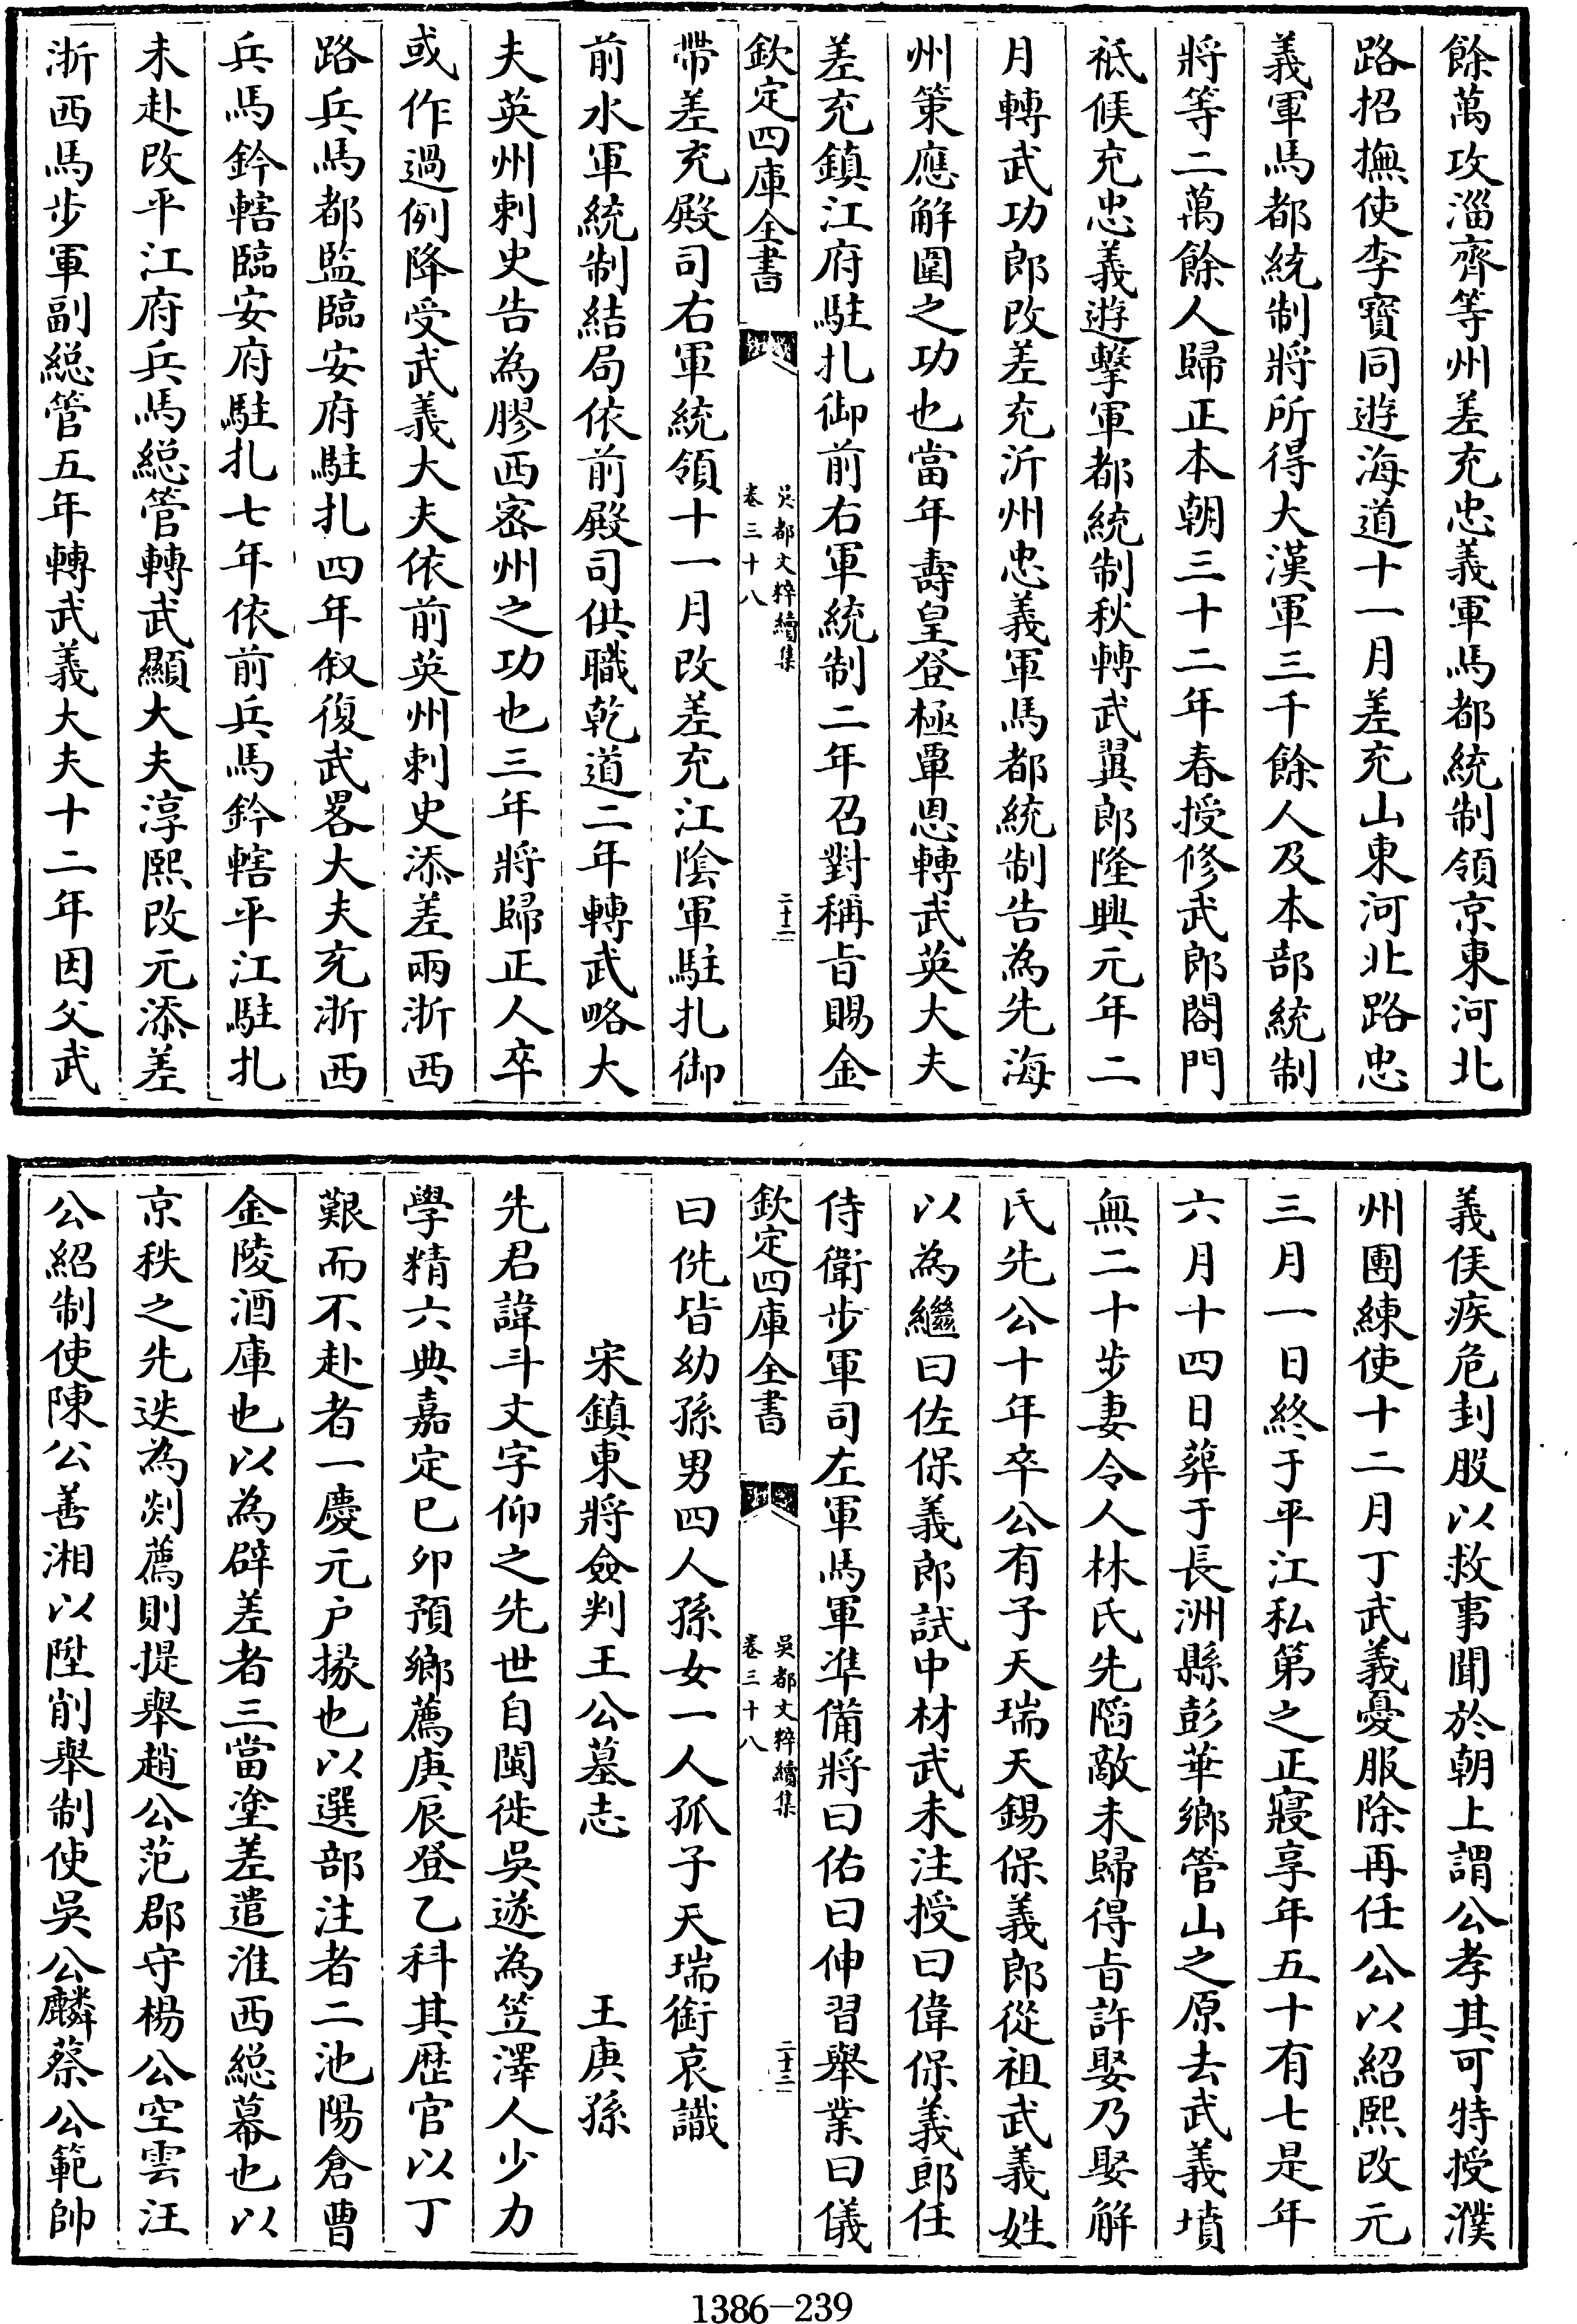 餘萬攻淄齊等州差充忠義軍馬都統制領京東河北
路招撫使李寶同遊海道十一月差充山東河北路忠
義軍馬都統制將所得大漢軍三千餘人及本部統制
將等二萬餘人歸正本朝三十二年春授修武郎閤門
祗候充忠義遊擊軍都統制秋轉武翼郎隆興元年二
月轉武功郎改差充沂州忠義軍馬都統制告為先海
州策應解圍之功也當年壽皇登極覃恩轉武英大夫
差充鎮江府駐扎御前右軍統制二年召對稱旨賜金
欽定四庫全書
吳都文粹續集
卷三十八
二十二
帶差充殿司右軍統領十一月改差充江陰軍駐扎御
前水軍統制結局依前殿司供職乾道二年轉武略大
夫英州刺史告為膠西密州之功也三年將歸正人卒
或作過例降受武義大夫依前英州刺史添差兩浙西
路兵馬都監臨安府駐扎四年叙復武畧大夫充浙西
兵馬鈐轄臨安府駐扎七年依前兵馬鈐轄平江駐扎
未赴改平江府兵馬總管轉武顯大夫淳熙改元添差
浙西馬步軍副總管五年轉武義大夫十二年因父武
義侯疾危刲股以救事聞於朝上謂公孝其可特授濮
州團練使十二月丁武義憂服除再任公以紹熙改元
三月一日終于平江私第之正寢享年五十有七是年
六月十四日葬于長洲縣彭華鄉管山之原去武義墳
無二十步妻令人林氏先陷敵未歸得旨許娶乃娶解
氏先公十年卒公有子天瑞天錫保義郎從祖武義姓
以為繼曰佐保義郎試中材武未注授曰偉保義郎任
侍衛步軍司左軍馬軍準備將曰佑曰伸習舉業曰儀
欽定四庫全書
吳都文粹續集
卷三十八
二十三
曰侁皆幼孫男四人孫女一人孤子天瑞銜哀識
宋鎮東將僉判王公墓志 王庚孫
先君諱斗文字仰之先世自閩徙吳遂為笠澤人少力
學精六典嘉定已卯預鄉薦庚辰登乙科其歷官以丁
艱而不赴者一慶元户掾也以選部注者二池陽倉曹
金陵酒庫也以為辟差者三當塗差遣淮西總幕也以
京秩之先迭為剡薦則提舉趙公范郡守楊公空雲汪
公紹制使陳公善湘以陞削舉制使吳公麟蔡公範帥
1386-239